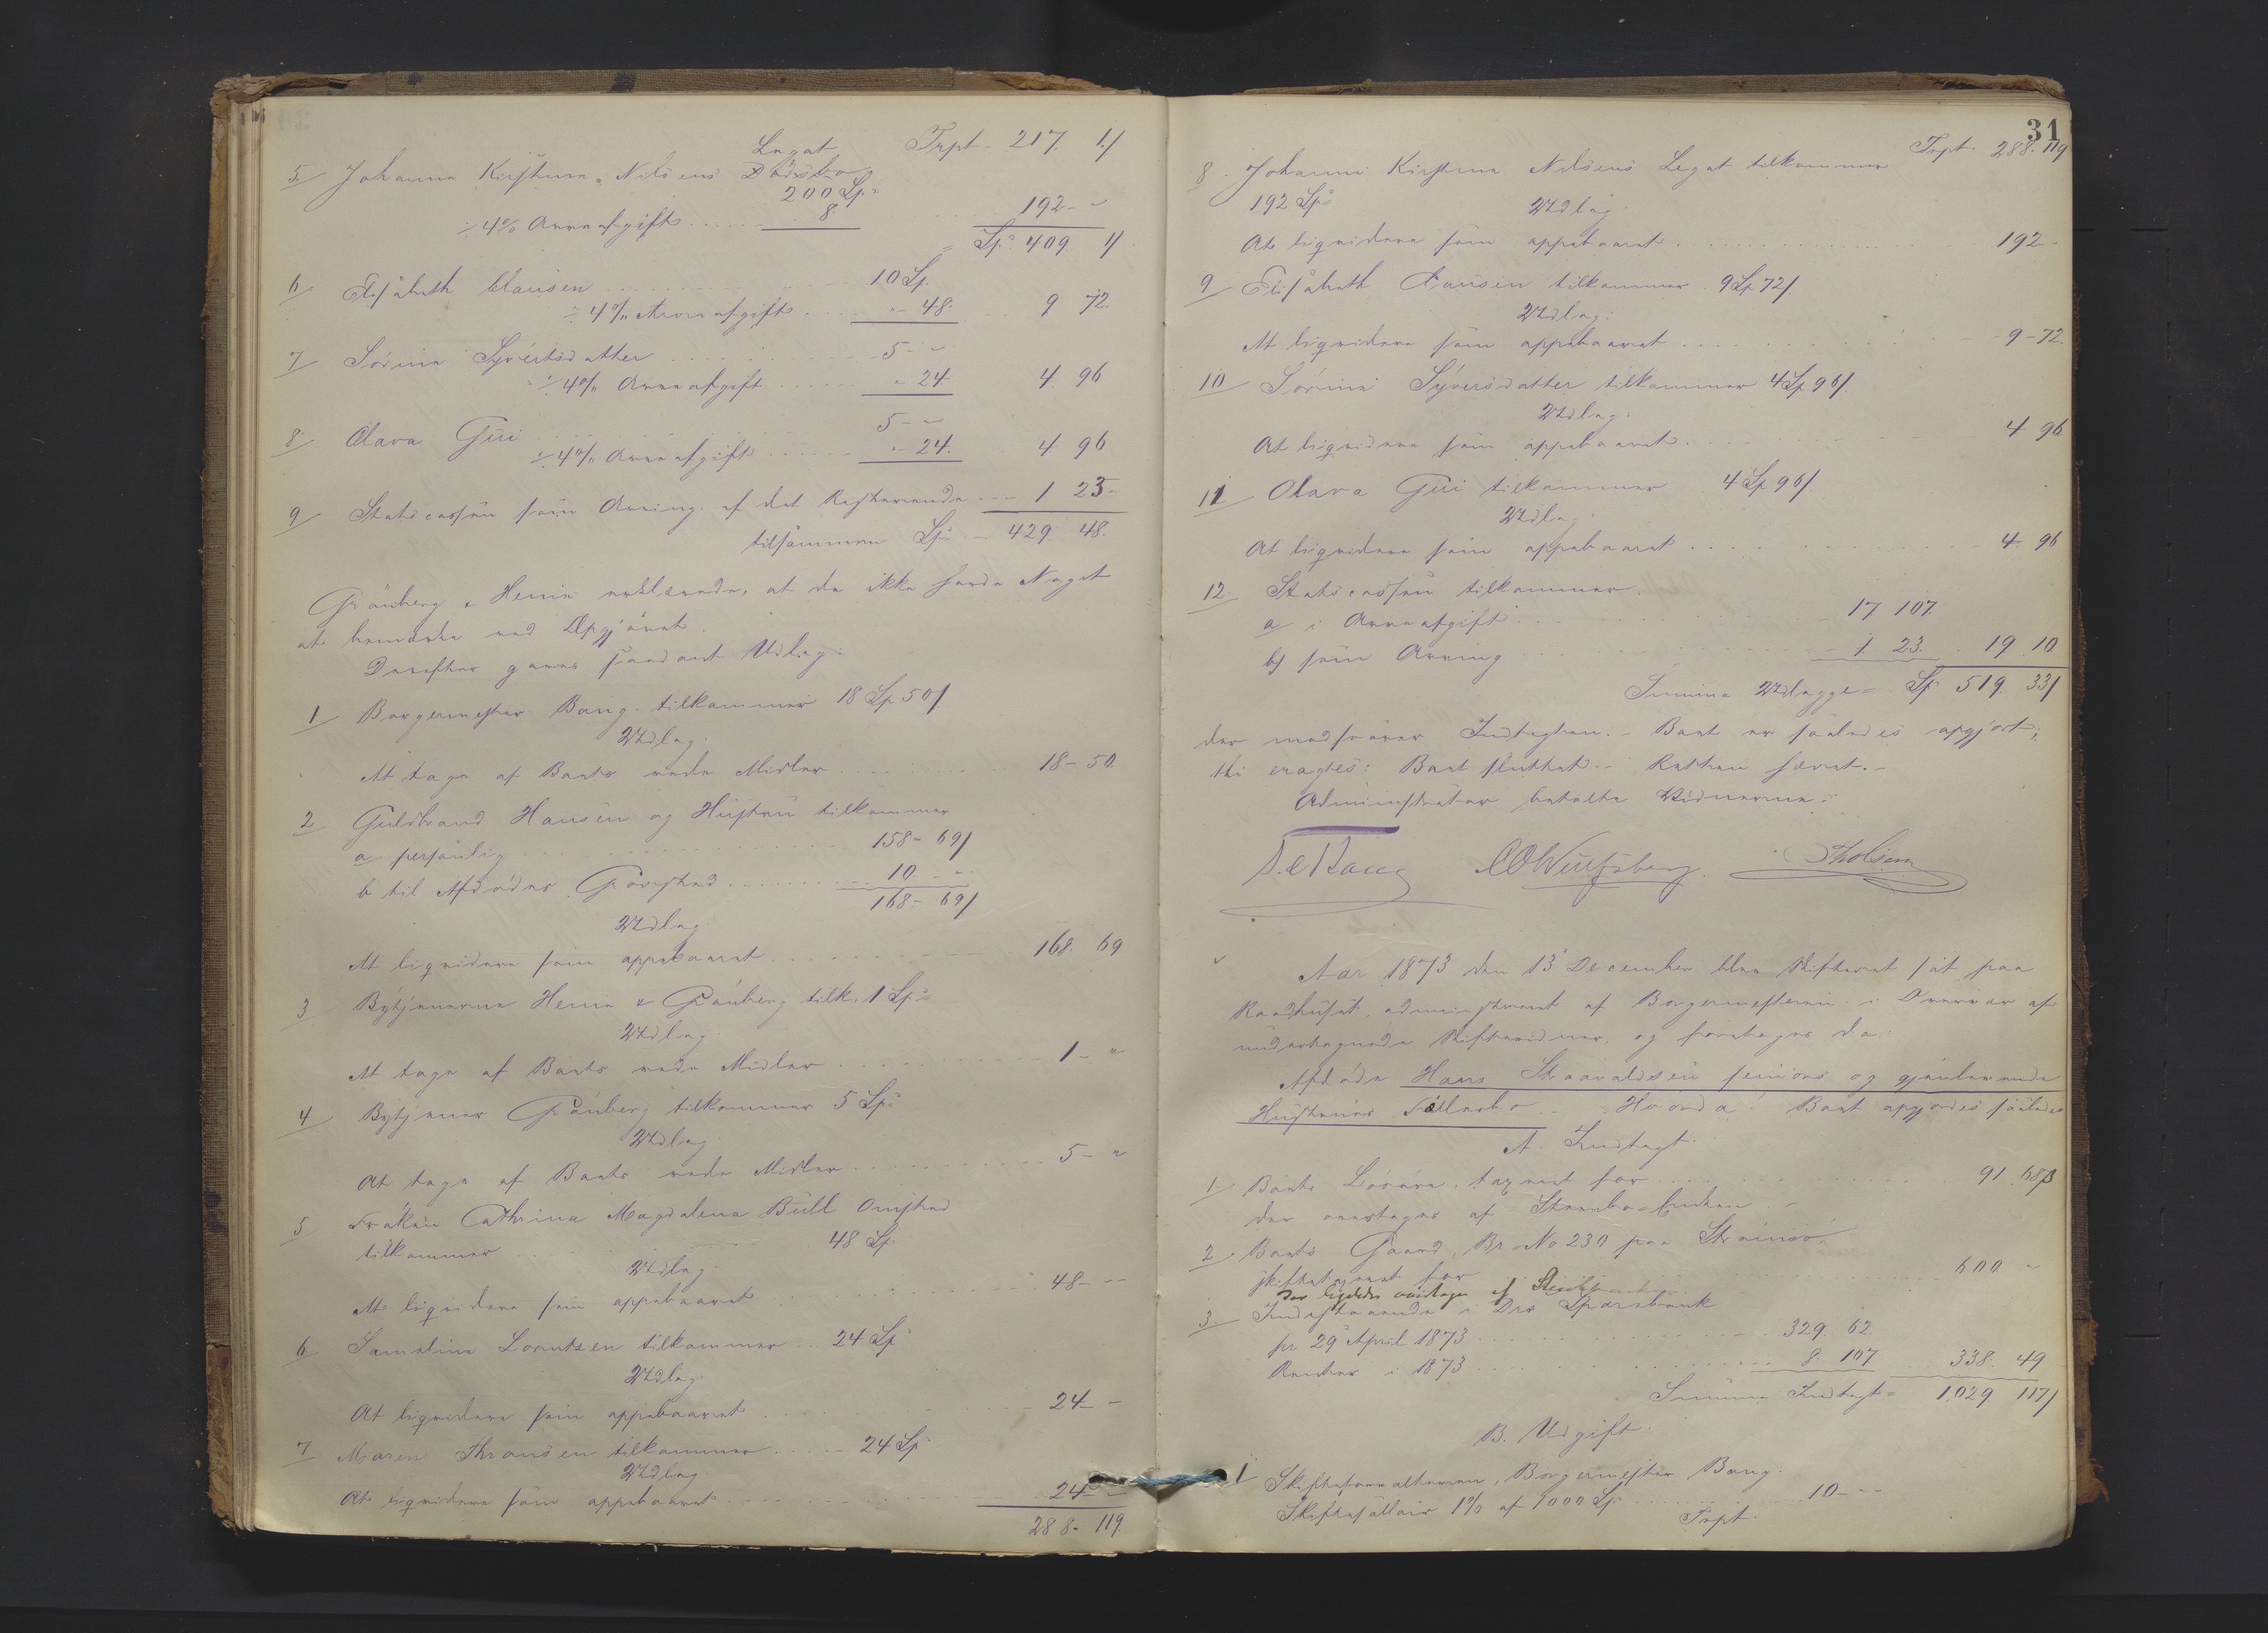 Trpt. 217. 1/
Legat
5/ Johanna Kirstine Nilsens Dødsbo
200 Sp.
÷ 4% Arveafgift ..... 8 192 - "
= Sp. 409 1/
6/ Elisabeth Clausen ........ 10 Sp.
÷ 4% Arveafgift .... " - 48. 9 72.
7/ Sörine Syvertsdatter ...... 5 - "
÷ 4% Arveafgift ...... " 24 4. 96
8/ Clara Gui ........ 5 - "
÷ 4% Arveafgift ...... " - 24. 4 96
9/ Statscassen som Arving af det Resterende ... 1 23 -
tilsammen Sp. - 429. 48.
Grönberg & Henie erklærede, at de ikke havde Noget
at bemærke ved Opgjøret.
Derefter gives saadant Udlæg:
1/ Borgermester Bang tilkommer 18 Sp 50/
Udlæg:
At tage af Boets rede Midler ........ 18 - 50.
2/ Guldbrand Hansen og Hustru tilkommer
a/ personlig ........ 158 - 69/
b til Afdødes Gravsted ........ 10 - "
168 - 69/
Udlæg
At liqvidere som oppebaaret ........ 168. 69
3/ Bytjenerne Henie & Grönberg tilk. 1 Sp.
Udlæg
At tage af Boets rede Midler ........ 1 - "
4/ Bytjener Grönberg tilkommer 5 Sp.
Udlæg
At tage af Boets rede Midler ........ 5 - "
5/ Frøken Cathrine Magdalena Bull Omsted
tilkommer ........ 48 Sp.
Udlæg
At liqvidere som oppebaaret ........ 48 - -
6/ Sameline Lorntzen tilkommer .. 24 Sp.
Udlæg
At liqvidere som oppebaaret ........ 24 - -
7/ Maren Thronsen tilkommer ..... 24 Sp.
Udlæg
At liqvidere som oppebaaret ........ 24 - -
288 - 119.
31
Trpt. 288. 119
8. Johanne Kirstine Nilsens Legat tilkommer
192 Sp. Udlæg.
At liqvidere som oppebaaret ........ 192 -
9/ Elisabeth Clausen tilkommer . 9 Sp 72/
Udlæg:
At liqvidere som oppebaaret ........ 9 - 72.
10/ Sörine Syversdatter tilkommer 4 Sp 96/
Udlæg:
At liqvidere som oppebaaret ........ 4 96
11/ Clara Gui tilkommer 4 Sp 96/
Udlæg
At liqvidere som oppebaaret ........ 4 96
12. Statscassen tilkommer.
a i Arveafgift ........ 17 107.
b/ som Arving ........ 1 23. . 19 10
Summa Udlægge = Sp. 519. 33/
der modsvarer Indtægten. - Boet er saaledes opgjort;
thi eragtes: Boet sluttet. - Retten hævet. -
Administrator betalte Vidnerne.
Bang COWulfsberg Tholsen
Aar 1873 den 13 December blev Skifteret sat paa
Raadhuset, administreret af Borgermesteren i Overvær af
undertegnede Skiftevidner, og foretoges da:
Afdøde Hans Thaavaldsen seniors og gjenlevende
Hustrues Fællesbo - Hvorda! Boet opgjordes saaledes
A. Indtægt.
1/ Boets Løsøre, taxeret for ........ 91. 68/
der overtages af Sterbo-Enken -
2/ Boets Gaard, Br. No 230 paa Strömsö
skiftetaxeret for ........ 600 "
der ligeledes overtages af
3. Indestaaende i Drs Sparebank
pr 29 April 1873 ........ 329. 62
Renter i 1873 ........ 8. 107 338. 49
Summa Indtægt = 1,029 117/
B. Udgift
1/ Skifteforvalteren, Borgermester Bang.
Skiftesallair 1% af 1000 Sp. ........ 10 - -
Trpt.